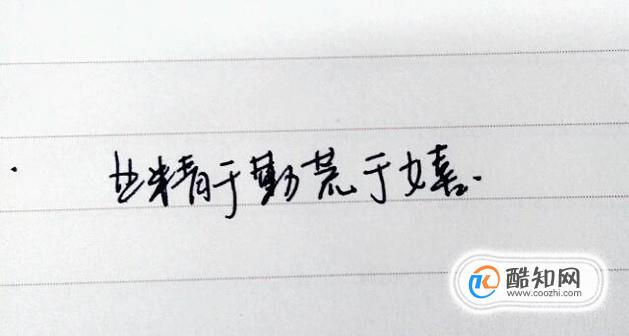 业精于勤荒于嬉.
酷知网
www.coozhi.com